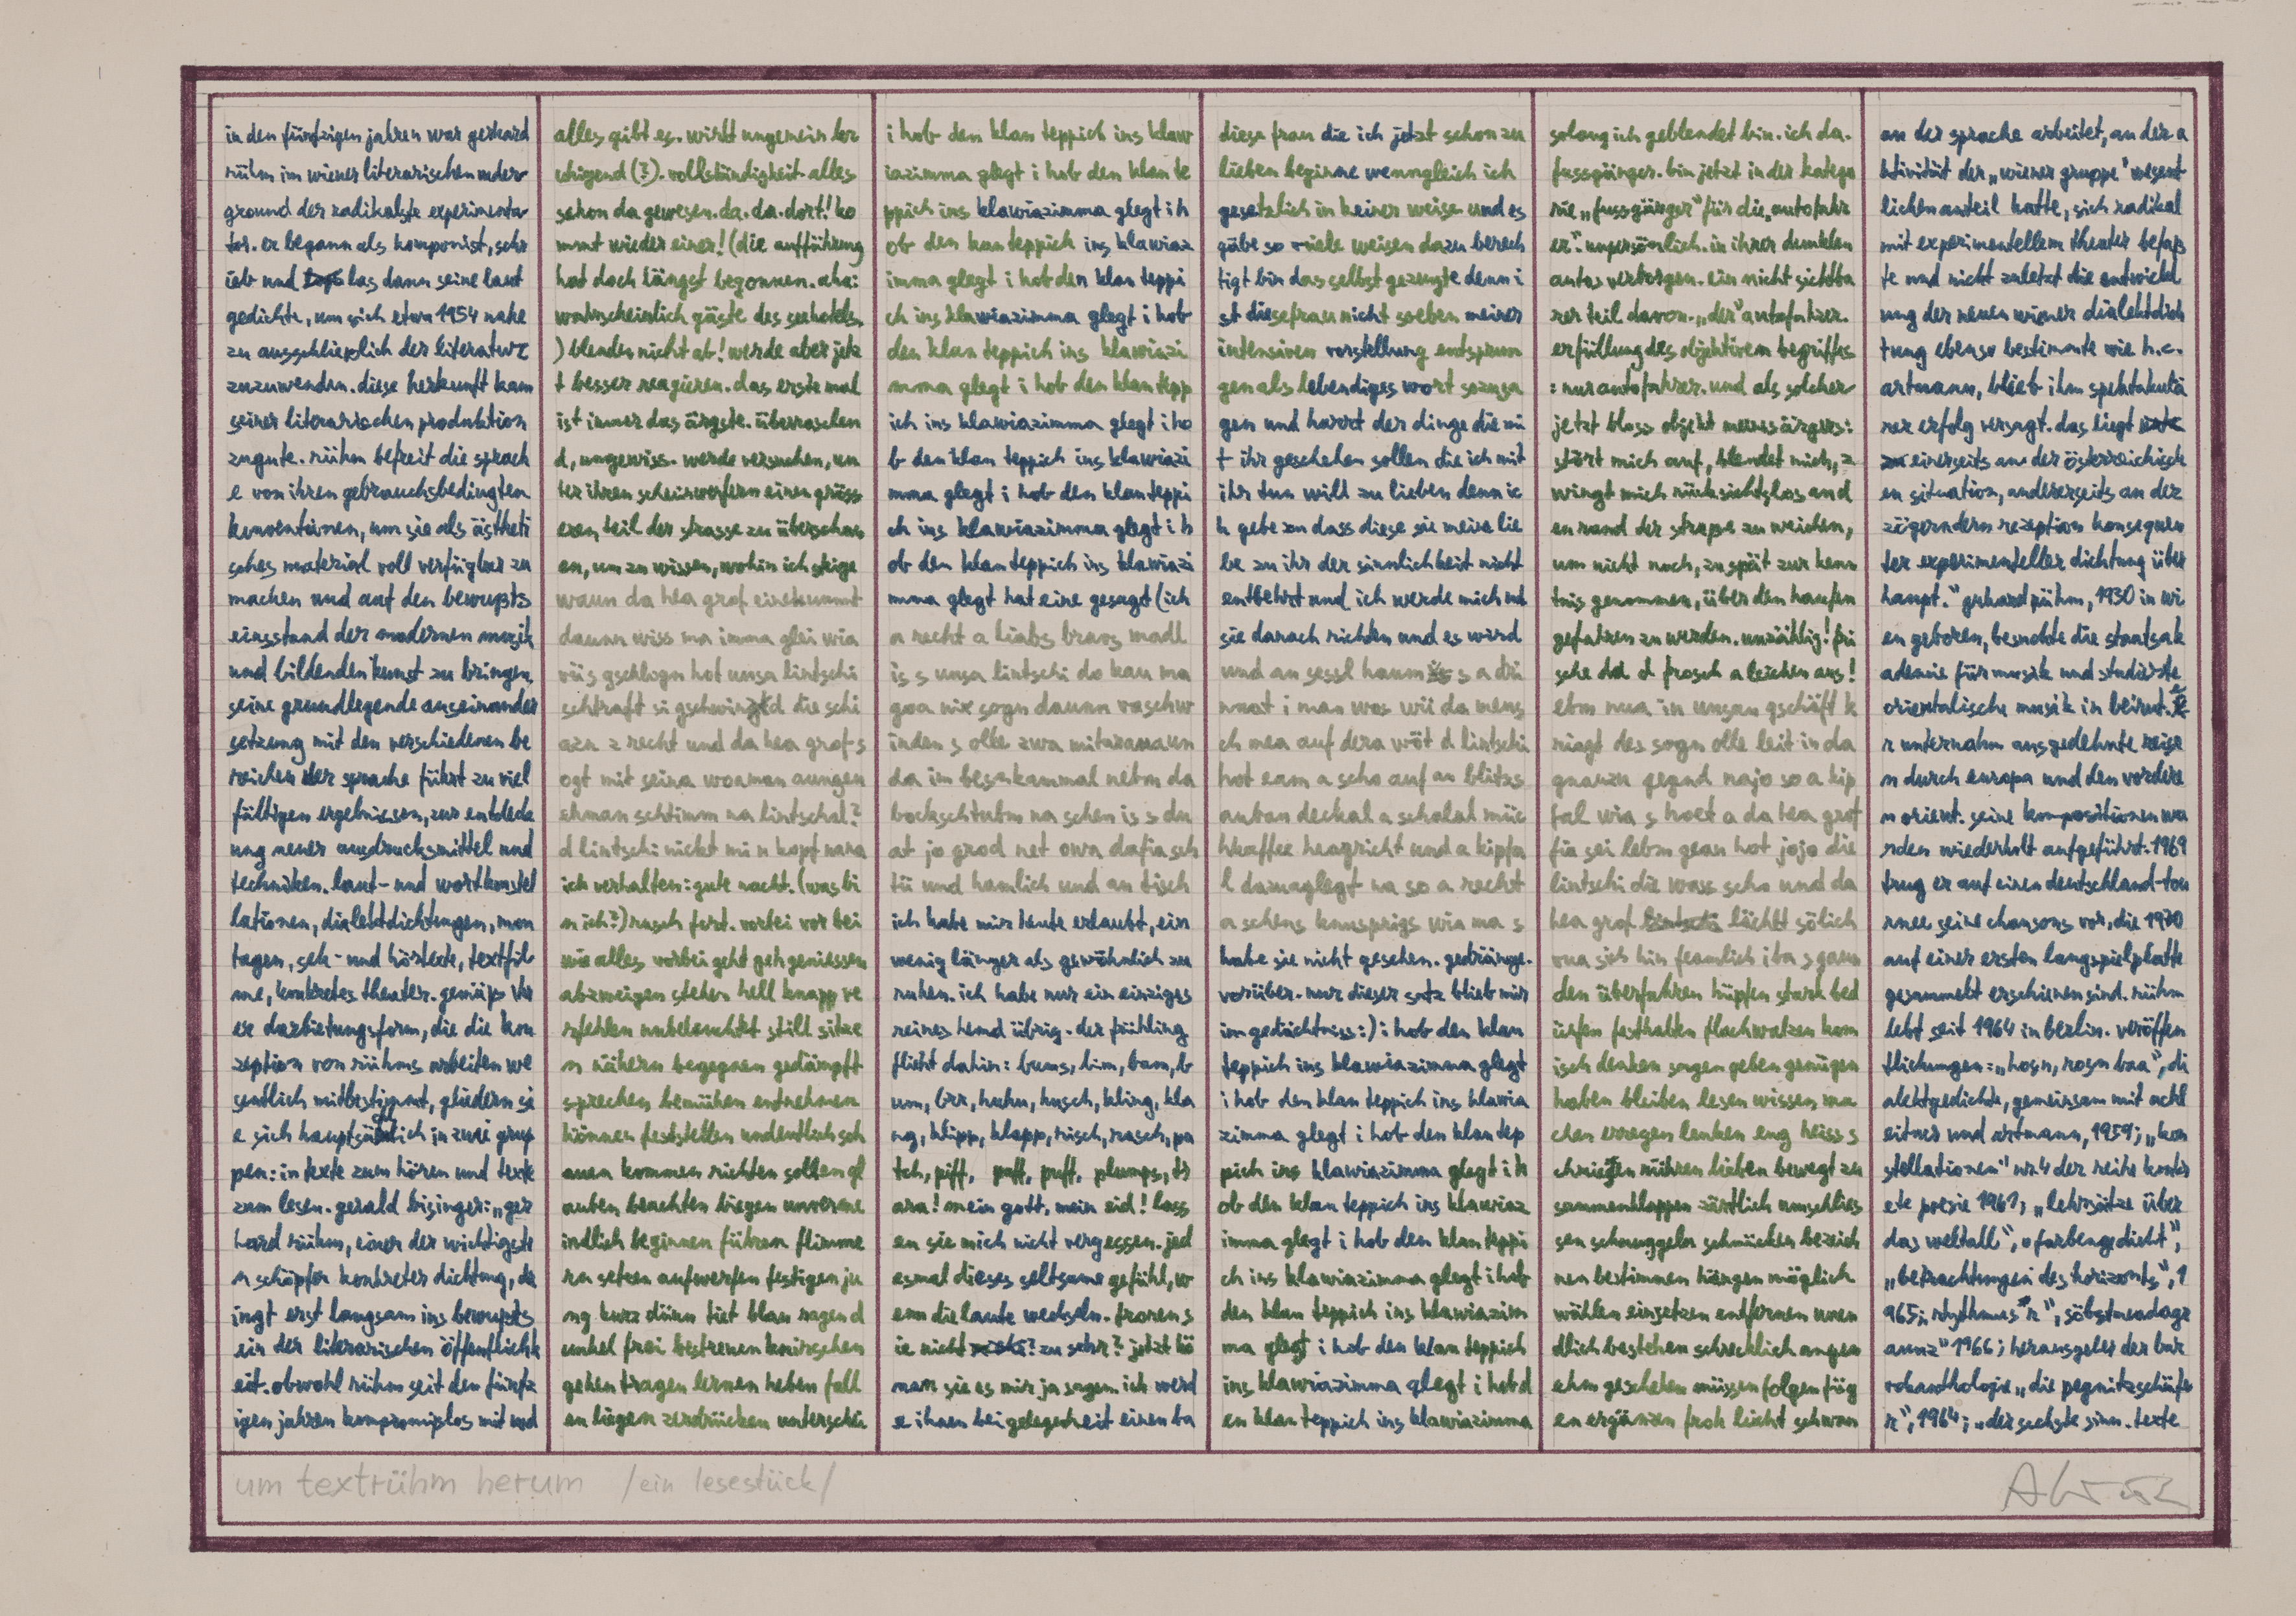 in den fünfzigen jahren war gerhard
rühm im wiener literarischen under
ground der radikalste experimenta
tor. er begann als komponist, schr
ieb und las dann seine laut
gedichte, um sich etwa 1954 nahe
zu ausschließlich der literatur
zuzuwenden. diese herkunft kam
seiner literarischen produktion
zugute. rühm befreit die sprach
e von ihren gebrauchsbedingten
konventionen, um sie als ästheti
sches material voll verfügbar zu
machen und auf den bewußts
einsstand der modernen musik
und bildenden kunst zu bringen.
seine grundlegende auseinander
setzung mit den verschiedenen be
reichen der sprache führt zu viel
fältigen ergebnissen, zur entdeck
ung neuer ausdrucksmittel und
techniken. laut- und wortkonstel
lationen, dialektdichtungen, mon
tagen, seh- und hörtexte, textfil
me, konkretes theater. gemäß ihr
er darbietungsform, die die kon
zeption von rühms arbeiten we
sentlich mitbestimmt, gliedern si
e sich hauptsächlich in zwei grup
pen: in texte zum hören und texte
zum lesen. gerald bisinger: „ger
hard rühm, einer der wichtigste
n schöpfer konkreter dichtung, dr
ingt erst langsam ins bewußts
ein der literarischen öffentlichk
eit. obwohl rühm seit den fünfz
igen jahren kompromißlos mit und
alles gibt es. wirkt ungemein ber
uhigend (?). vollständigkeit. alles
schon da gewesen. da. da. dort! ko
mmt wieder einer! (die aufführung
hat doch längst begonnen. aha:
wahrscheinlich gäste des seehotels.
) blenden nicht ab! werde aber jetz
t besser reagieren. das erste mal
ist immer das ärgste. überraschen
d, ungewiss. werde versuchen, un
ter ihren scheinwerfern einen gröss
eren teil der strasse zu überschau
en, um zu wissen, wohin ich steige
waun da hea grof einekummt
daunn wiss ma imma glei wia
vüs gschlogn hot unsa lintschi
schtraft si gschwind die schi
azn z recht und da hea grof s
ogt mit seina woamen aungen
ehman schtimm na lintscherl?
d lintschi nickt mi n kopf nana
ich verhalten: gute nacht. (was bi
n ich?) rasch fort. vorbei vor bei
wie alles vorbei geht geh geniessen
abzweigen stehen hell knapp ve
rfehlen unbeleuchtet still sitze
n nähern begegnen gedämpft
sprechen bemühen entnehmen
können feststellen undeutlich sch
auen kommen richten sollen gl
auben beachten biegen unverme
idlich beginnen führen flimme
rn setzen aufwerfen festigen ju
ng kurz dünn tief blau ragen d
unkel frei bestreuen knirschen
gehen tragen lernen heben fall
en liegen zerdrücken unterschei
i hob den klan teppich ins klaw
iazimma glegt i hob den klan te
ppich ins klawiazimma glegt i h
ob den klan teppich ins klawiaz
imma glegt i hob den klan teppi
ch ins klawiazimma glegt i hob
den klan teppich ins klawiazi
mma glegt i hob den klan tepp
ich ins klawiazimma glegt i ho
b den klan teppich ins klawiazi
mma glegt i hob den klan teppi
ch ins klawiazimma glegt i h
ob den klan teppich ins klawiazi
mma glegt hat eine gesagt (ich
a recht a liabs bravs madl
is s unsa lintschi do kau ma
goa nix sogn daunn vaschw
inden s olle zwa mitanaunn
da im besnkammal nebm da
bockschtubm na schen is s du
at jo grod net owa dafia sch
tü und hamlich und an tisch
ich habe mir heute erlaubt, ein
wenig länger als gewöhnlich zu
ruhen. ich habe nur ein einziges
reines hemd übrig. der frühling
flieht dahin: bums, bim, bam, b
um, brr, huhu, husch, kling, kla
ng, klipp, klapp, risch, rasch, pa
tch, piff, paff, puff, plumps, tr
ara! mein gott, mein eid! lass
en sie mich nicht vergessen. jed
esmal dieses seltsame gefühl, w
enn die laute wechseln. froren s
ie nicht? zu sehr? jetzt kö
nnen sie es mir ja sagen. ich werd
e ihnen bei gelegenheit einen ba
diese frau die ich jetzt schon zu
lieben beginne wenngleich ich
gesetzlich in keiner weise und es
gäbe so viele weisen dazu berech
tigt bin das selbst gezeugte denn i
st diese frau nicht soeben meiner
intensiven vorstellung entsprun
gen als lebendiges wort sozusa
gen und harrt der dinge die mi
t ihr geschehen sollen die ich mit
ihr tun will zu lieben denn ic
h gebe zu dass diese sie meine lie
be zu ihr der sinnlichkeit nicht
entbehrt und ich werde mich an
sie danach richten und es wird
und an sessl haum s a dri
nnat i man wos wü da mens
ch mea auf dera wöt d lintschi
hot eam a scho auf an blitzs
auban deckal a schalal müc
hkaffee heagricht und a kipfa
l dazuaglegt na so a recht
a schens knusprigs wia ma s
habe sie nicht gesehen. gedränge.
vorüber. nur dieser satz blieb mir
im gedächtniss:) i hob den klan
teppich ins klawiazimma glegt
i hob den klan teppich ins klawia
zimma glegt i hob den klan tep
pich ins klawiazimma glegt i h
ob den klan teppich ins klawiaz
imma glegt i hob den klan teppi
ch ins klawiazimma glegt i hob
den klan teppich ins klawiazim
ma glegt i hob den klan teppich
ins klawiazimma glegt i hob d
en klan teppich ins klawiazimma
solang ich geblendet bin. ich da.
fussgänger. bin jetzt in der katego
rie „fussgänger" für die „autofahr
er". unpersönlich. in ihrer dunklen
autos verborgen. ein nicht sichtba
rer teil davon. „der" autofahrer.
erfüllung des objektiven begriffes
: nur autofahrer. und als solcher
jetzt bloss objekt meines ärgers:
stört mich auf, blendet mich, z
wingt mich rücksichtslos and
en rand der straße zu weichen,
um nicht noch, zu spät zur kenn
tnis genommen, über den haufen
gefahren zu werden. unzählig! fri
sche da d frosch a leichen aus!
ebm nua in unsan gschäft k
riagt des sogn olle leit in da
gnauzn gegnd najo so a kip
fal wia s hoet a da hea grof
fia sei lebm gean hot jojo die
lintschi die wass scho und da
hea grof lächlt sölich
vua sich hin feamlich iba s gaun
den überfahren hüpfen stark bed
ürfen festhalten flachwalzen kom
isch denken sorgen geben genügen
haben bleiben lesen wissen ma
chen erregen lenken eng heiss s
chmiegen rühren lieben bewegt zu
sammenklappen zärtlich umschlies
sen schmuggeln schmücken bezeich
nen bestimmen hängen möglich
wählen einsetzen entfernen unen
dlich bestehen schrecklich angen
ehm geschehen müssen folgen füg
en ergänzen froh leicht schwan
an der sprache arbeitet, an der a
ktivität der „wiener gruppe" wesent
lichen anteil hatte, sich radikal
mit experimentellem theater befaß
te und nicht zuletzt die entwickl
ung der neuen wiener dialektdich
tung ebenso bestimmte wie h.c.
artmann, blieb ihm spektakulä
rer erfolg versagt. das liegt
einerseits an der österreichisch
en situation, andererseits an der
zögerndern rezeption konsequen
ter experimenteller dichtung über
haupt." gerhard rühm, 1930 in wi
en geboren, besuchte die staatsak
ademie für musik und studierte
orientalische musik in beirut. e
r unternahm ausgedehnte reise
n durch europa und den vordere
n orient. seine kompositionen wu
rden wiederholt aufgeführt. 1969
trug er auf einen deutschland-tou
rnee seine chansons vor, die 1970
auf einer ersten langspielplatte
gesammelt erschienen sind. rühm
lebt seit 1964 in berlin. veröffen
tlichungen: „hosn, rosn baa", di
alektgedichte, gemeinsam mit achl
eitner und artmann, 1959; „kon
stellationen" nr. 4 der reihe konkr
ete poesie 1961; „lehrsätze über
das weltall", „farbengedicht",
„betrachtungen des horizonts", 1
965; rhythmus r", söbstmeadagr
aunz" 1966; herausgeber der bar
ockanthologie „die pegnitzschäfe
r", 1964; „der sechste sinn. texte
um textrühm herum /ein lesestück/